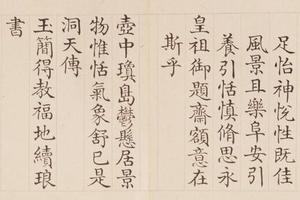 足怡神悅性既佳
風景且樂阜安引
養引恬慎脩思永
皇祖御題齋額意在
斯乎
壺中瓊島鬱懸居景
物惟恬氣象舒已是
洞天傳
玉簡得教福地續琅
書